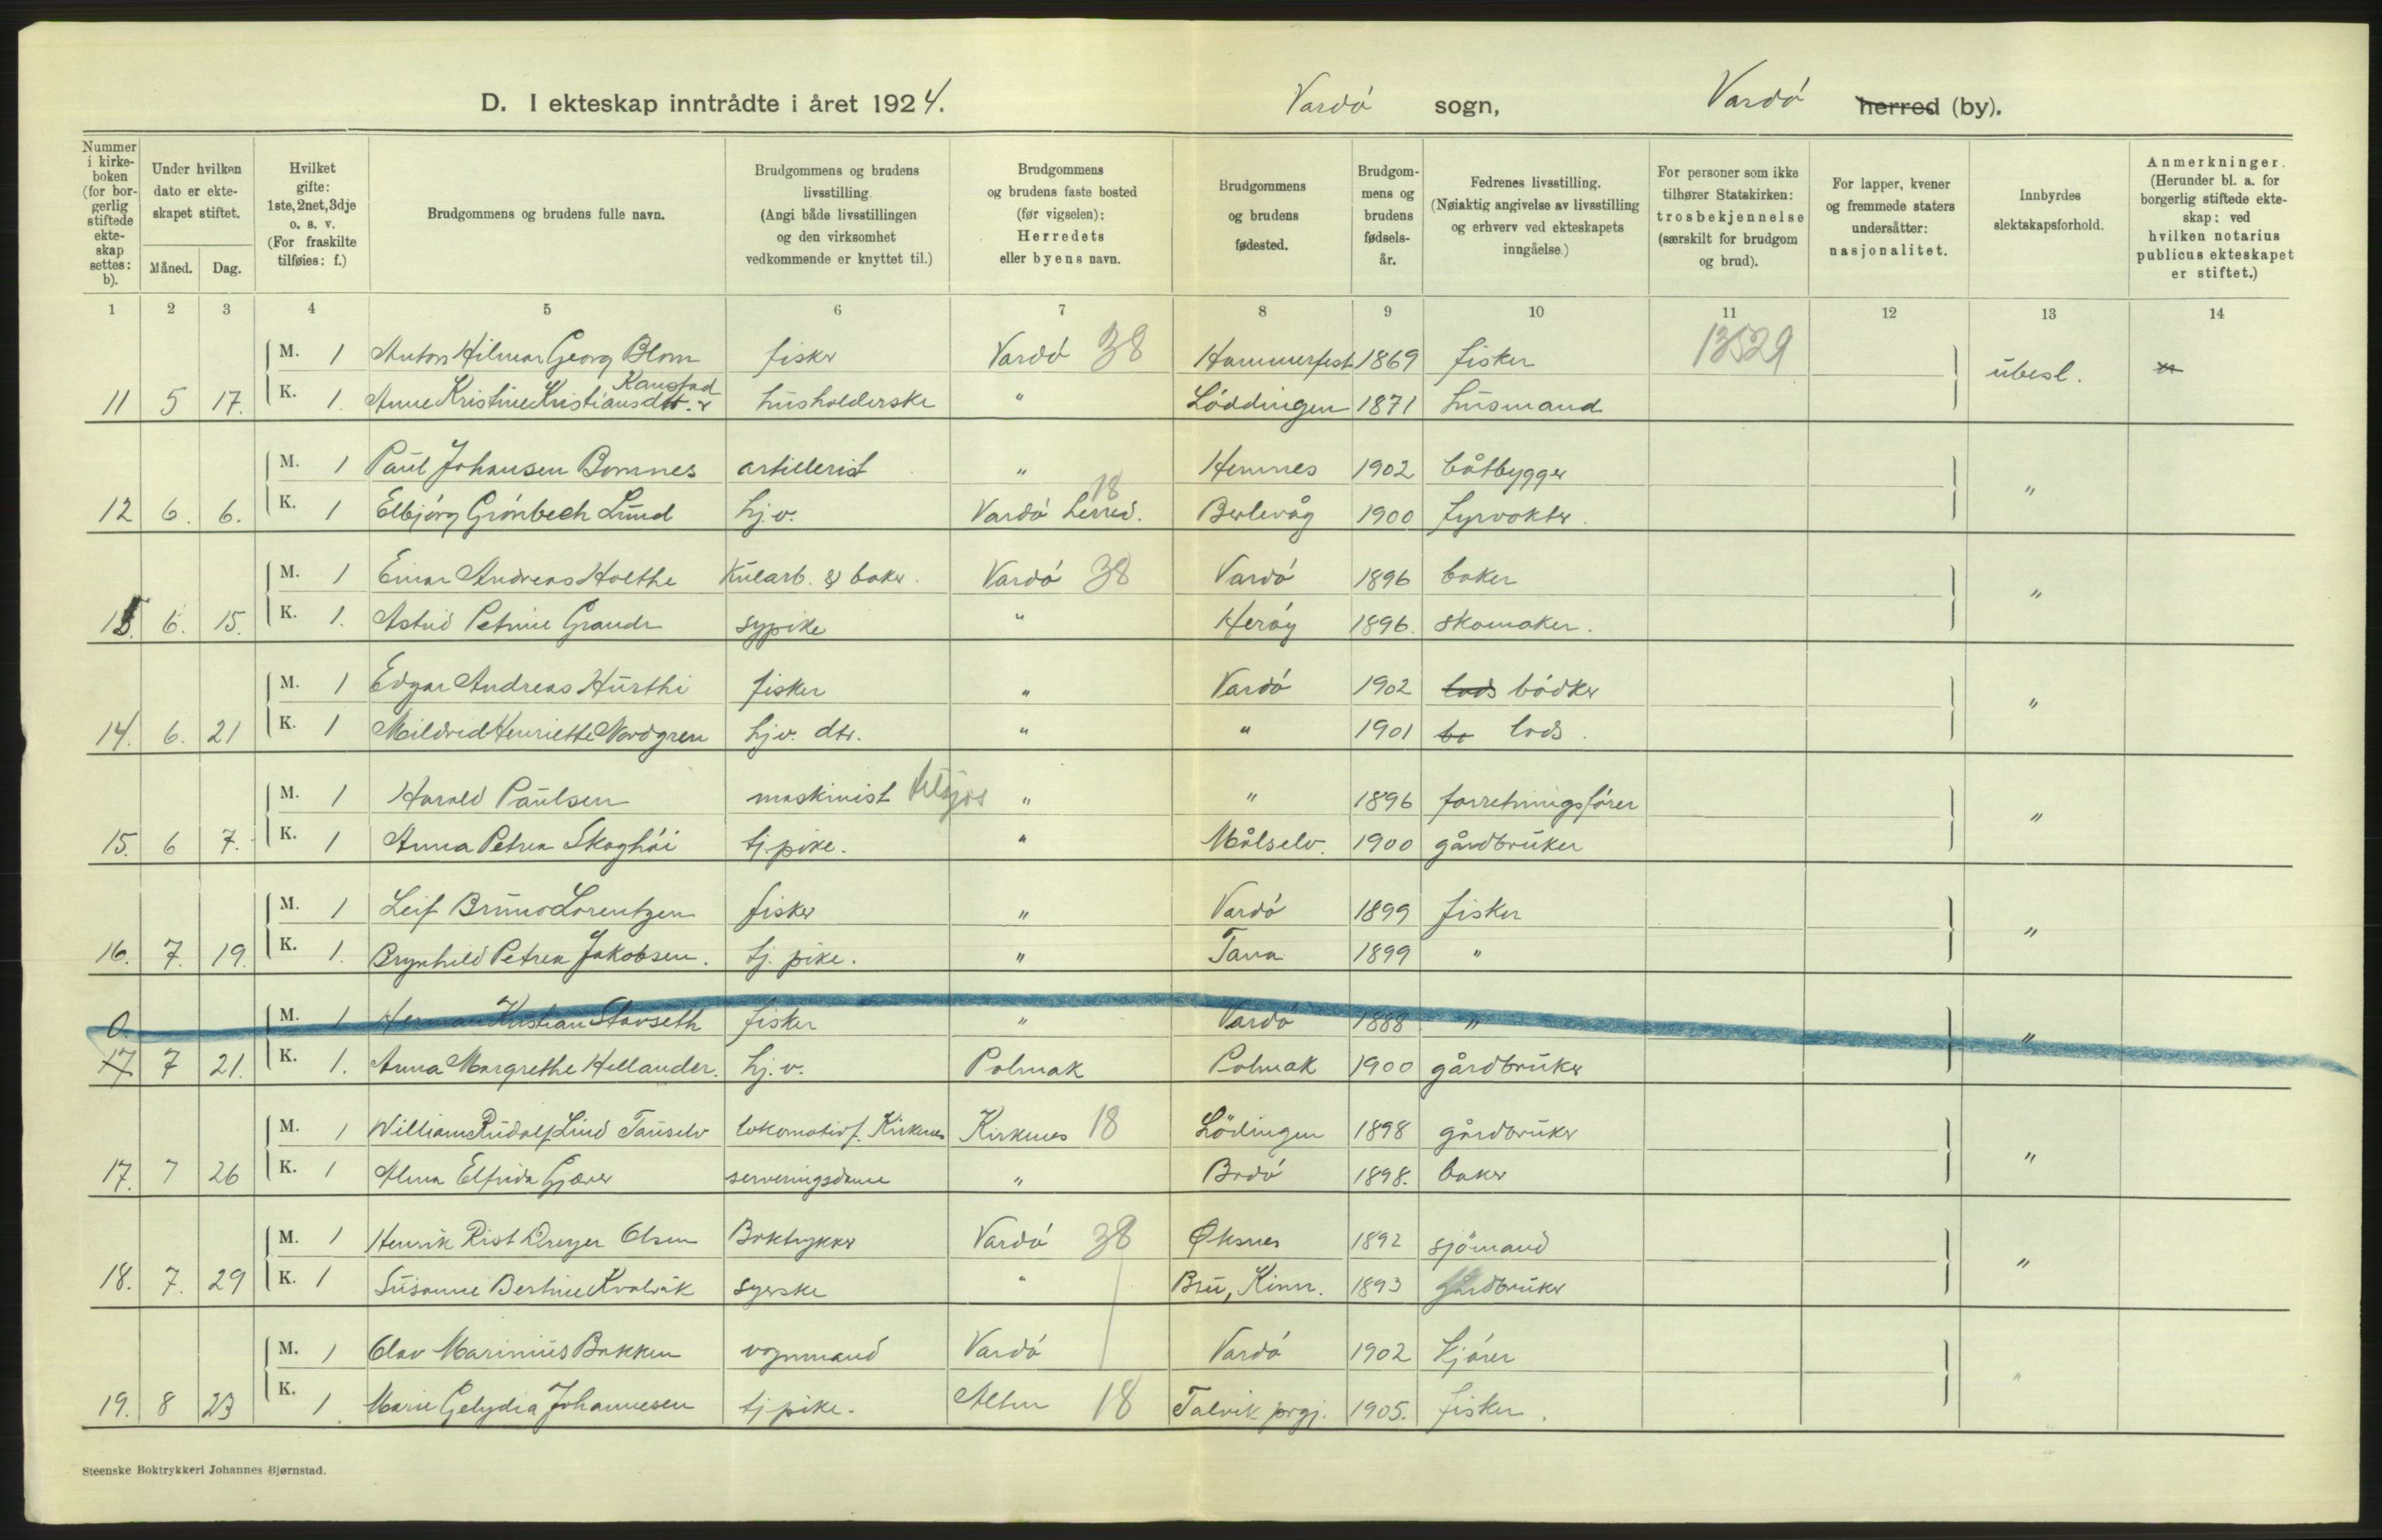 D. I ekteskap inntrådte i året 1924. Vardö sogn, Vardö herred (by).
Nummer i kirkeboken (for borgerlig stiftede ekteskap settes: b).
Under hvilken dato er ekteskapet stiftet.
Måned. Dag.
Hvilket gifte: 1ste, 2net, 3dje o. s. v. (For fraskilte tilføies: f.)
Brudgommens og brudens fulle navn.
Brudgommens og brudens livsstilling. (Angi både livsstillingen og den virksomhet vedkommende er knyttet til.)
Brudgommens og brudens faste bosted (før vigselen): Herredets eller byens navn.
Brudgommens og brudens fødested.
Brudgommens og brudens fødselsår.
Fedrenes livsstilling. (Nøiaktig angivelse av livsstilling og erhverv ved ekteskapets inngåelse.)
For personer som ikke tilhører Statskirken: trosbekjennelse (særskilt for brudgom og brud).
For lapper, kvener og fremmede staters undersåtter: nasjonalitet.
Innbyrdes slektskapsforhold.
Anmerkninger. (Herunder bl. a. for borgerlig stiftede ekteskap: ved hvilken notarius publicus ekteskapet er stiftet.)
1 2 3 4 5 6 7 8 9 10 11 12 13 14
M. 1 Anton Hilmar Georg Blom fisker Vardö 38 Hammerfest 1869 fisker 13529 übesl.
Kanstad
11 5 17. K. 1. Anne Kristine Kristiansdtr. husholderske " Löddingen 1871 husmand
M. 1 Paul Johansen Bomnes artillerist " Hemnes 1902 båtbygger "
18
12 6. 6. K. 1 Elbjörg Grönbech Lund hj.v. Vardö herred. Berlevåg 1900 fyrvokter.
M. 1 Einar Andreas Holthe Kularb. & baker. Vardö 38 Vardö 1896 baker "
13. 6. 15. K. 1. Astrid Petrine Grande sypike " Heröy 1896. skomaker.
M. 1 Edgar Andreas Hurthi fisker " Vardö 1902 lods bödker "
14. 6. 21 K. 1 Mildrid Henriette Nordgren hj.v. dtr. " " 1901 bø lods.
M. 1 Harald Paulsen maskinist " " 1896 forretningsförer "
15. 6 7. K. 1 Anna Petrea Skoghöi tj.pike. " Målselv. 1900 gårdbruker
M. 1 Leif Bruno Lorentzen fisker " Vardö 1899 fisker "
16. 7. 19. K. 1. Brynhild Petrea Jakobsen. tj. pike. " Tana 1899 "
0. M. 1 Herman Kristian Stavseth fisker " Vardö 1888 " "
17 7 21. K. 1. Anna Margrethe Hellander. hj.v. Polmak Polmak 1900 gårdbruker
M. 1 William Rudolf Lind Tauselv lokomotivf. Kirkenes Kirkenes 18 Lödingen 1898 gårdbruker "
17. 7 26 K. 1 Alma Elfrida Gjærer serveringsdame " Bodö 1898. baker
M. 1 Henrik Rist Dreyer Olsen Boktrykker Vardö 38 Øksnes 1892 sjömand "
18. 7. 29 K. 1 Susanne Bertine Kvalvik syerske " Bru, Kinn. 1893 gårdbruker
M. 1 Olav Marinius Bakken vognmand Vardö Vardö 1902 kjörer "
19. 8 23 K. 1 Marie Gelydia Johannesen tj.pike. Alten 18 Talvik prgj. 1905. fisker.
Steenske Boktrykkeri Johannes Bjørnstad.